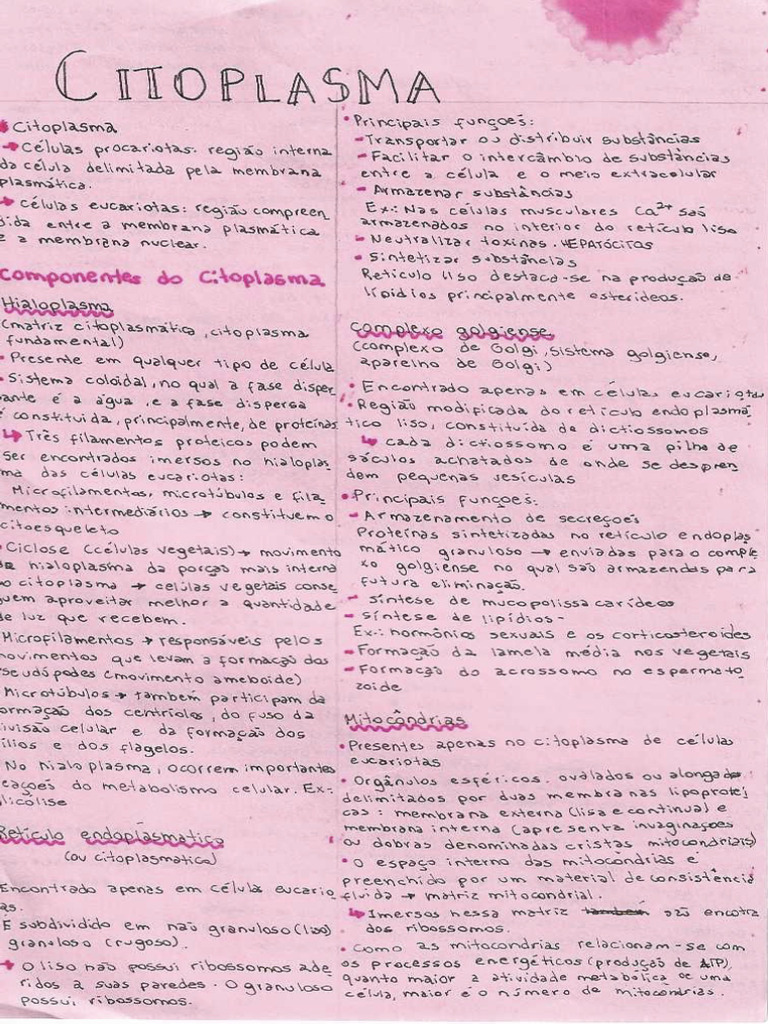 CITOPLASMA
Citoplasma
→ Células procariotas: região interna
da célula delimitada pela membrana
plasmática.
→ células eucariotas: região compreen
dida entre a membrana plasmática
e a membrana nuclear.
Componentes do Citoplasma
Hialoplasma
(matriz citoplasmática, citoplasma
fundamental)
• Presente em qualquer tipo de célula
• Sistema coloidal, no qual a fase disper
sante é a água, e a fase dispersa
é constituída, principalmente, de proteínas
↳ Três filamentos proteicos podem
ser encontrados imersos no hialoplas
ma das células eucariotas:
Microfilamentos, microtúbulos e fila
mentos intermediários → constituem o
citoesqueleto
• Ciclose (células vegetais) → movimento
da hialoplasma da porção mais interna
do citoplasma → células vegetais conse
guem aproveitar melhor a quantidade
de luz que recebem.
Microfilamentos → responsáveis pelos
movimentos que levam a formação dos
pseudópodes (movimento ameboide)
Microtúbulos → também participam da
formação dos centríolos, do fuso da
divisão celular e da formação dos
cílios e dos flagelos.
No hialoplasma, ocorrem importantes
reações do metabolismo celular. Ex:
glicólise
Retículo endoplasmático
(ou citoplasmatico)
Encontrado apenas em célula eucario
tas.
É subdividido em não granuloso (liso)
granuloso (rugoso).
→ O liso não possui ribossomos ade
ridos a suas paredes. O granuloso
possui ribossomos.
• Principais funções:
- Transportar ou distribuir substâncias
- Facilitar o intercâmbio de substâncias
entre a célula e o meio extracelular
- Armazenar substâncias
Ex.: Nas células musculares Ca²⁺ são
armazenados no interior do retículo liso
- Neutralizar toxinas. HEPATÓCITOS
• Sintetizar substâncias
Retículo liso destaca-se na produção de
lipídios principalmente esterídeos.
Complexo golgiense
(complexo de Golgi, sistema golgiense,
aparelho de Golgi)
• Encontrado apenas em células eucariotas
• Região modificada do retículo endoplasmá
tico liso, constituída de dictiossomos
↳ cada dictiossomo é uma pilha de
sáculos achatados de onde se despren
dem pequenas vesículas
• Principais funções:
- Armazenamento de secreções
Proteínas sintetizadas no retículo endoplas
mático granuloso → enviadas para o comple
xo golgiense no qual são armazendas para
futura eliminação.
- síntese de mucopolissacarídeos
- síntese de lipídios -
Ex: hormônios sexuais e os corticosteroides
- Formação da lamela média nos vegetais
- Formação do acrossomo no espermato
zoide
Mitocôndrias
• Presentes apenas no citoplasma de células
eucariotas
• Orgânulos esféricos, ovalados ou alongados
delimitados por duas membranas lipoprotei
cas: membrana externa (lisa e continua) e
membrana interna (apresenta invaginações
ou dobras denominadas cristas mitocondriais)
• O espaço interno das mitocôndrias é
preenchido por um material de consistência
fluida → matriz mitocondrial.
↳ Imersos nessa matriz também são encontra
dos ribossomos.
• Como as mitocondrias relacionam-se com
os processos energéticos (produção de ATP),
quanto maior a atividade metabólica de uma
célula, maior é o número de mitocôndrias.